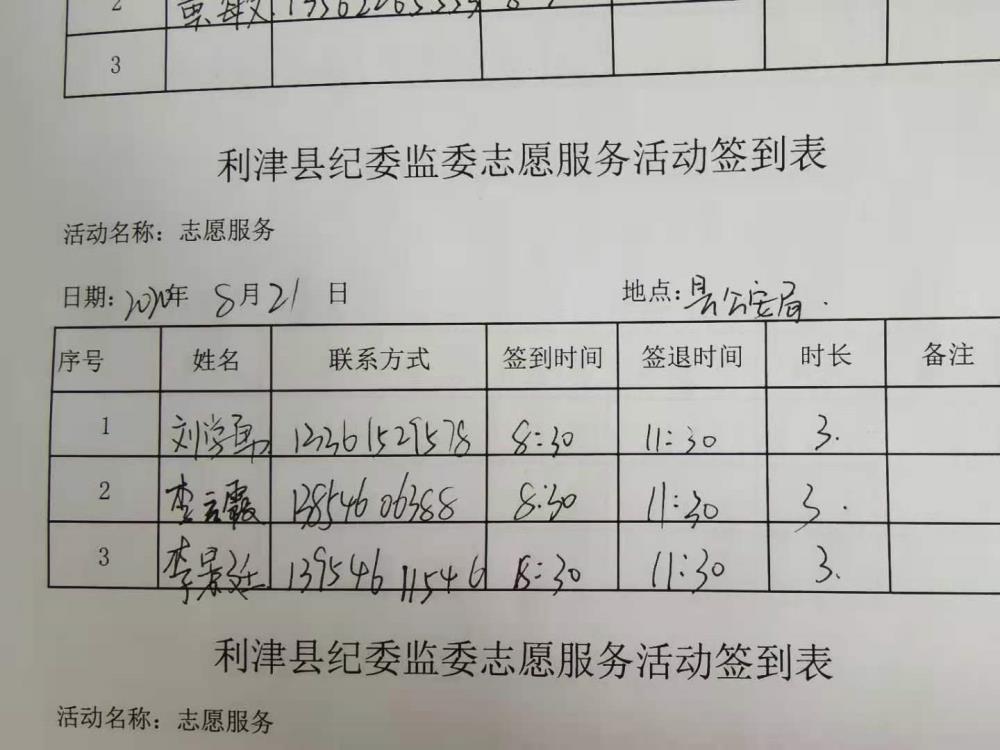 2
3
利津县纪委监委志愿服务活动签到表
活动名称：志愿服务
日期：2020年 8月21 日 地点：县公安局.
序号 姓名 联系方式 签到时间 签退时间 时长 备注
1 刘学勇 8:30 11:30 3.
2 李云霞 13854606388 8:30 11:30 3.
3 李景廷 13954611546 8:30 11:30 3.
利津县纪委监委志愿服务活动签到表
活动名称：志愿服务